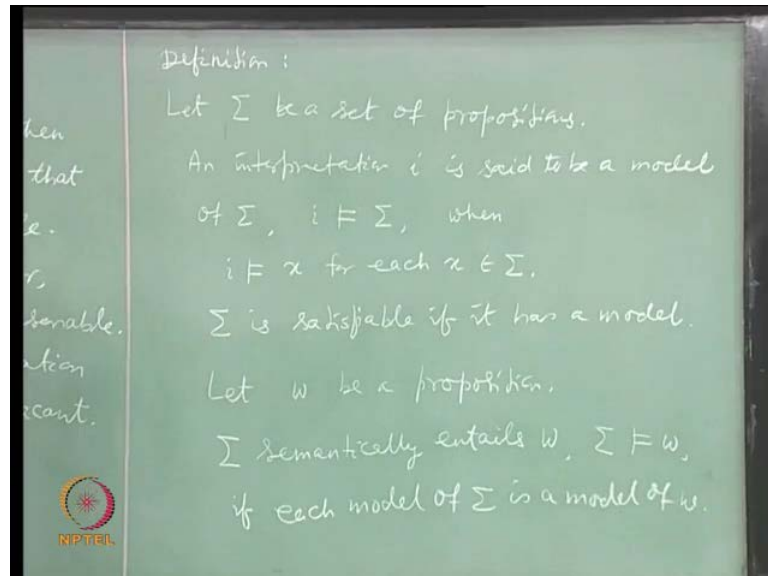 hen
that
e.
r,
senable.
ation
acant.
Definition :
Let Σ be a set of propositions.
An interpretation i is said to be a model
of Σ, i ⊨ Σ, when
i ⊨ x for each x ∈ Σ.
Σ is satisfiable if it has a model.
Let w be a proposition.
Σ semantically entails w, Σ ⊨ w,
if each model of Σ is a model of w.
NPTEL